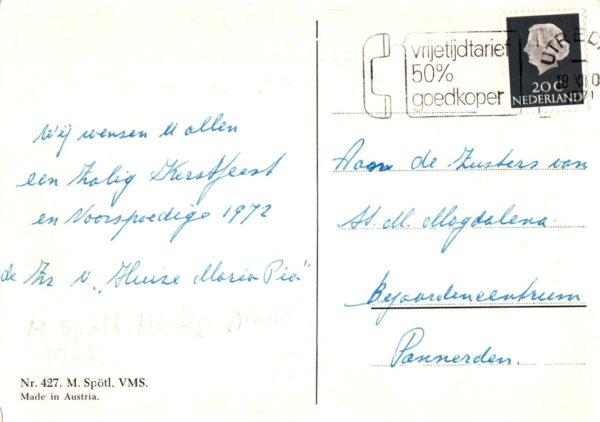 vrijetijdtarief
50%
goedkoper
UTRE
18 XII
20 C
NEDERLAND
Wij wensen U allen
een Zalig Kerstfeest
en Voorspoedige 1972
de Zr v. „Huize Maria Pia"
M. Spötl. Heilige
1965
Nr. 427. M. Spötl. VMS.
Made in Austria.
Aan de Zusters van
St. M. Magdalena
Bejaardencentrum
Pannerden.